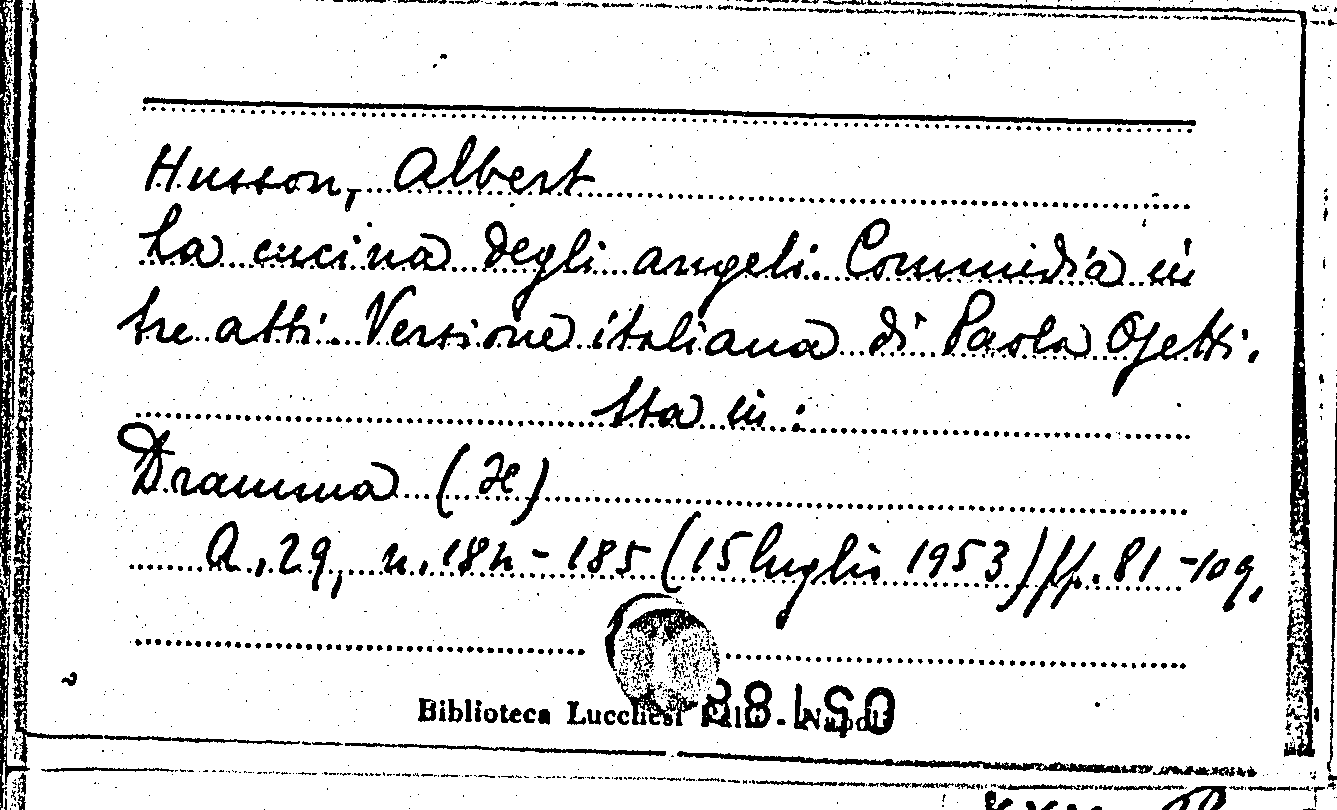 Husson, Albert
La cucina degli angeli. Commedia in
tre atti. Versione italiana di Paola Ojetti.
Sta in:
Dramma (Il)
A. 29, n. 184-185 (15 luglio 1953) pp. 81-109.
Biblioteca Lucchesi Palli - Napoli